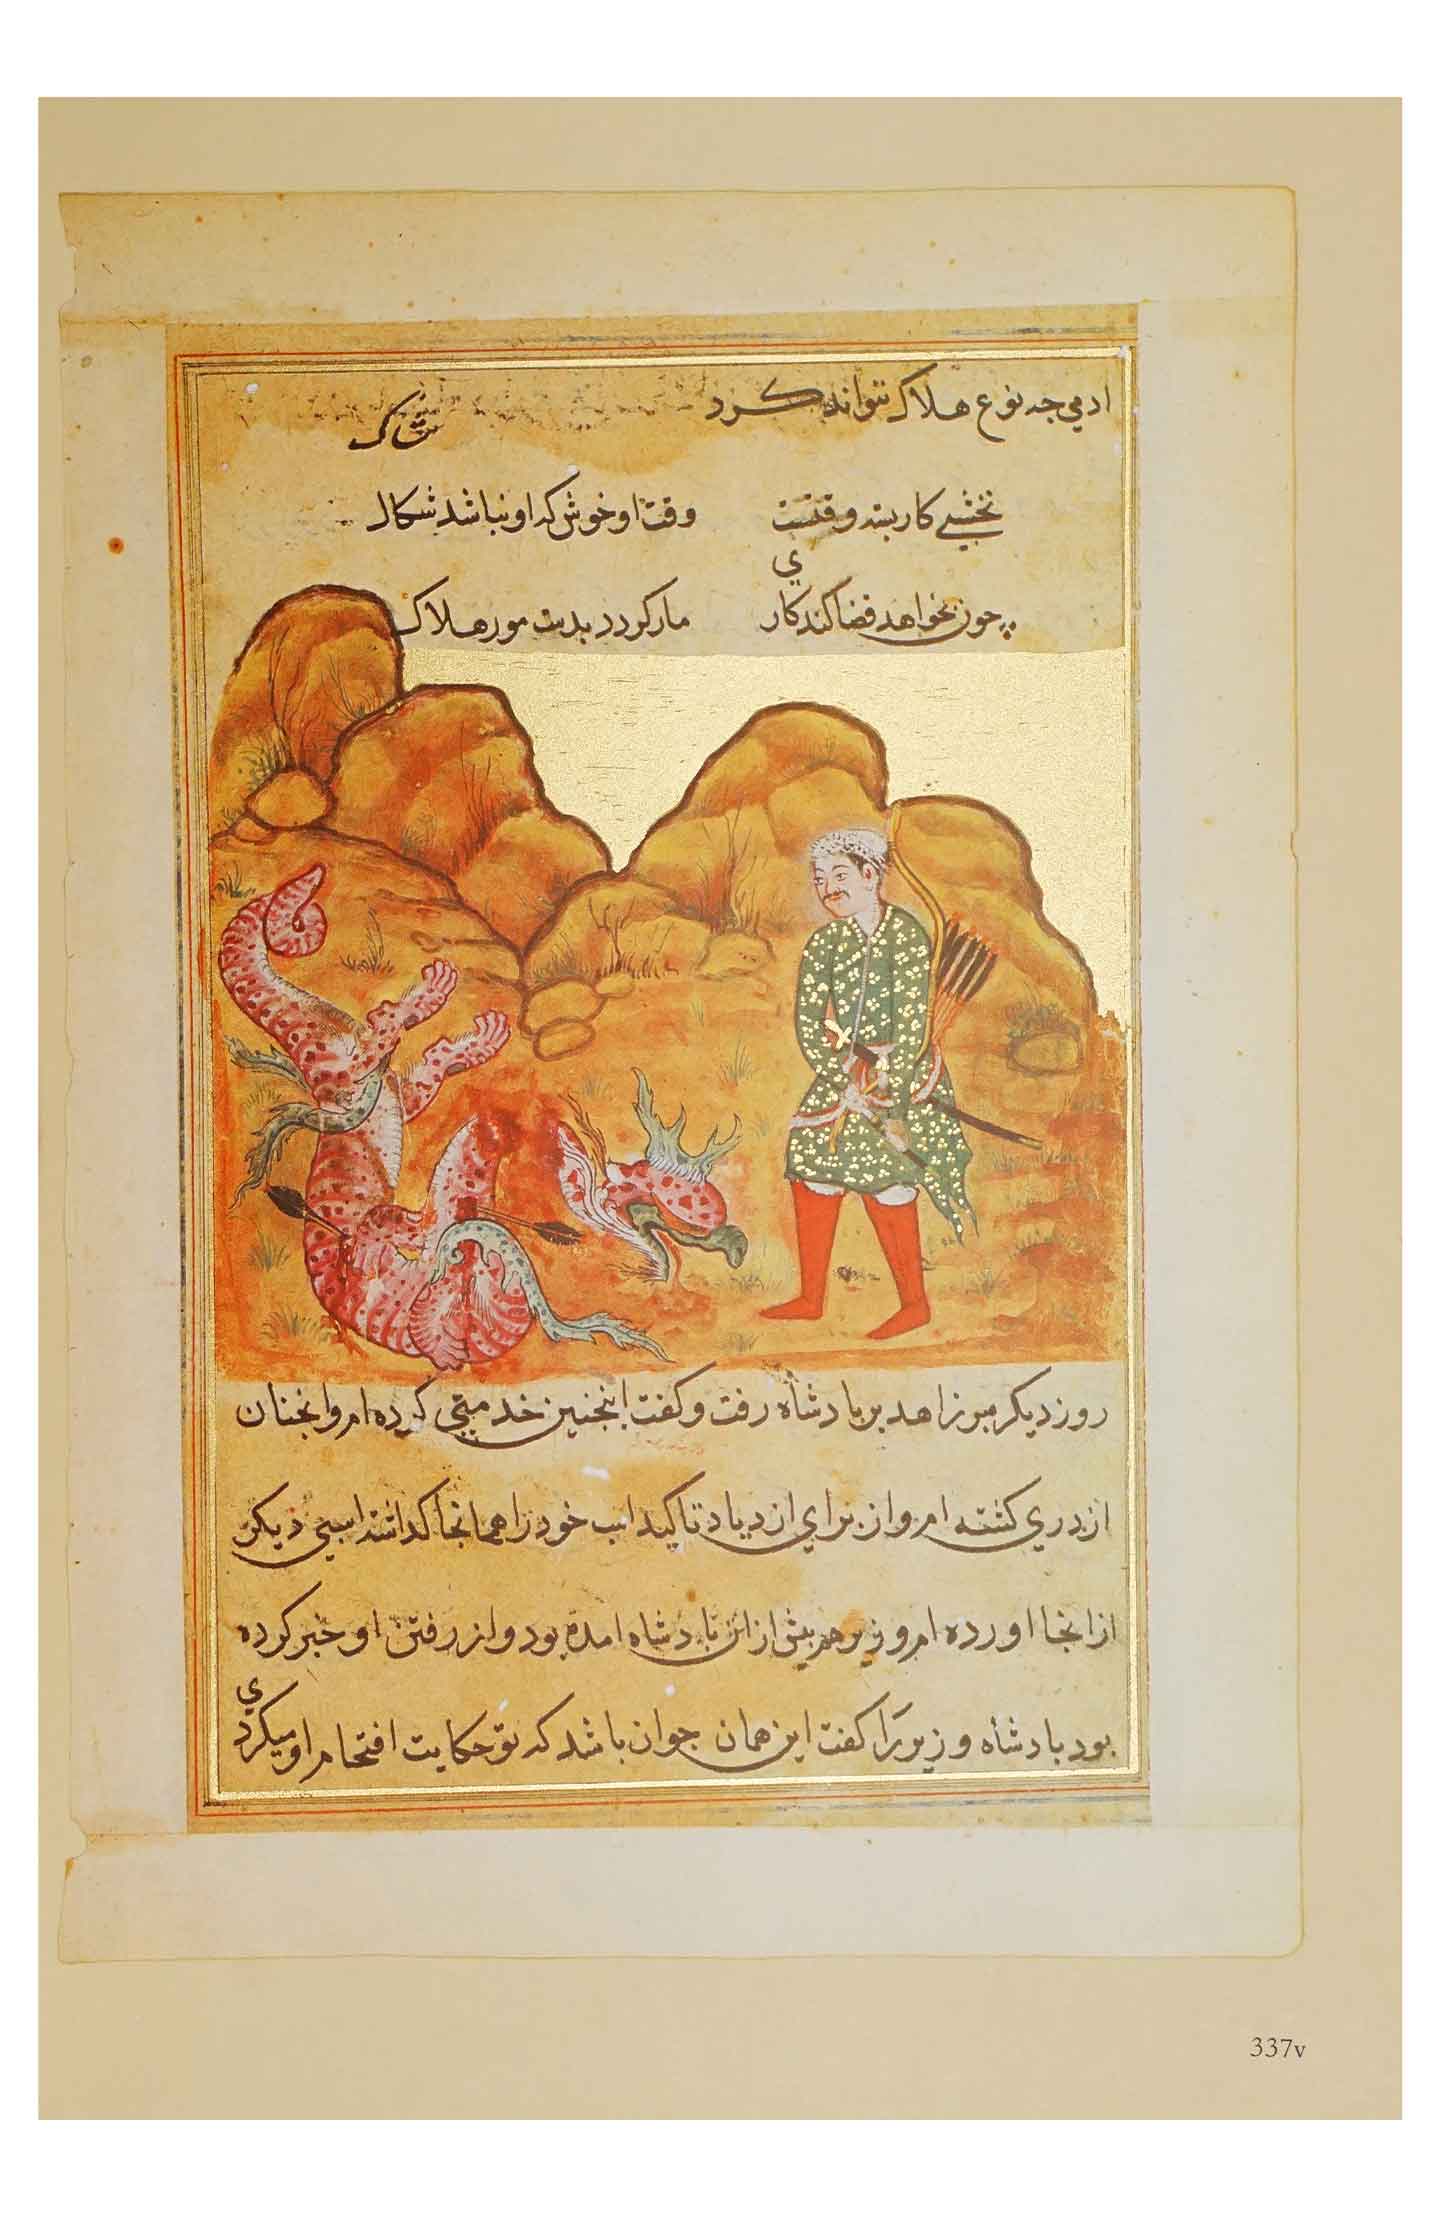 ادمي چه نوع هلاك تتواند كرد
نخشبي كار بسته وقتست وقت او خوش كه او نباشد
چون نخواهد قضا كند كاري مار كردد بدست مور هلاك
روز ديكر زاهد بر بادشاه رفت و كفت اينچنين خدمتي كرده ام و انچنان
اژدري كشته ام و از براي ازدياد تاكيد اسب خود را همانجا كذاشته اسبي ديكر
از انجا اورده ام وزير هم پيش ازان بادشاه امده بود و از رفتن او خبر كرده
بود بادشاه وزير را كفت اين همان جوان باشد كه تو حكايت او ميكردي
337v